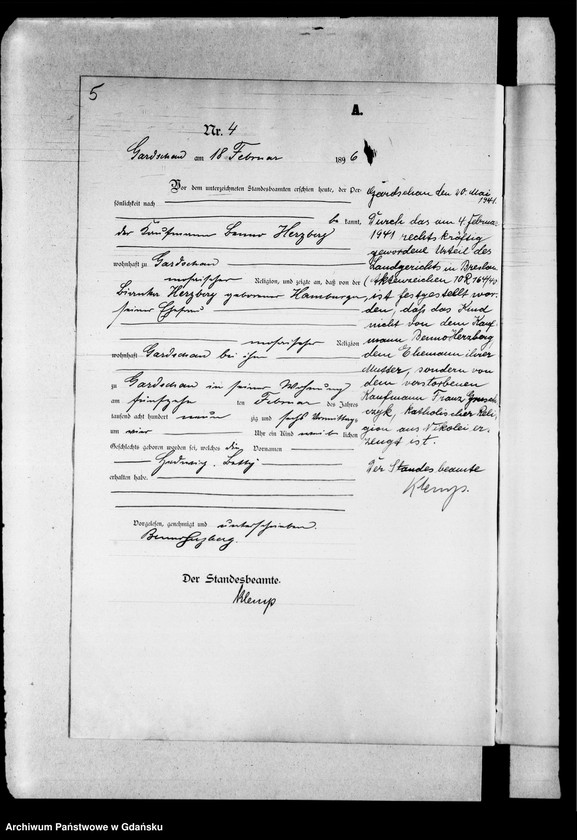 5
A.
Nr. 4
Gardschau am 18 Februar 1896
Vor dem unterzeichneten Standesbeamten erschien heute, der Per-
sönlichkeit nach
be kannt,
der Kaufmann Benno Herzberg
wohnhaft zu Gardschau
mosaischer Religion, und zeigte an, daß von der
Bianka Herzberg geborenen Hamburger
seiner Ehefrau
mosaischer Religion
wohnhaft Gardschau bei ihm
zu Gardschau in seiner Wohnung
am fünfzehn ten Februar des Jahres
tausend acht hundert neun zig und sechs Vormittags
um vier Uhr ein Kind weib lichen
Geschlechts geboren worden sei, welches die Vornamen
Hedwig, Betty
erhalten habe.
Vorgelesen, genehmigt und unterschrieben.
Benno Herzberg.
Der Standesbeamte.
Klemp
Gardschau den 20. Mai
1941.
Durch das am 4. Februar
1941 rechtskräftig
gewordene Urteil des
Landgerichts in Breslau
(Aktenzeichen 10 R. 164/40
ist festgestellt wor-
den, daß das Kind
nicht von dem Kauf-
mann Benno Herzberg
dem Ehemann ihrer
Mutter, sondern von
dem verstorbenen
Kaufmann Franz
czyk, katholischer Reli-
gion aus Nikolei er-
zeugt ist.
Der Standesbeamte
Klemp.
Archiwum Państwowe w Gdańsku